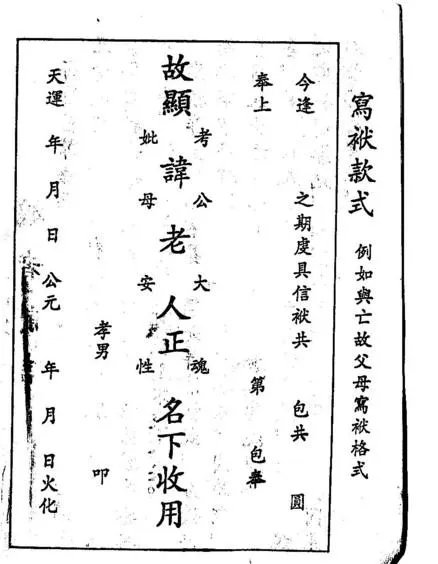 寫袱款式 例如與亡故父母寫袱格式
今逢 之期虔具信袱共 包共 圓
奉上 第 包奉
考公大魂
故顯 諱老人正 名下收用
妣母安性
孝男 叩
天運 年月日公元 年月日火化